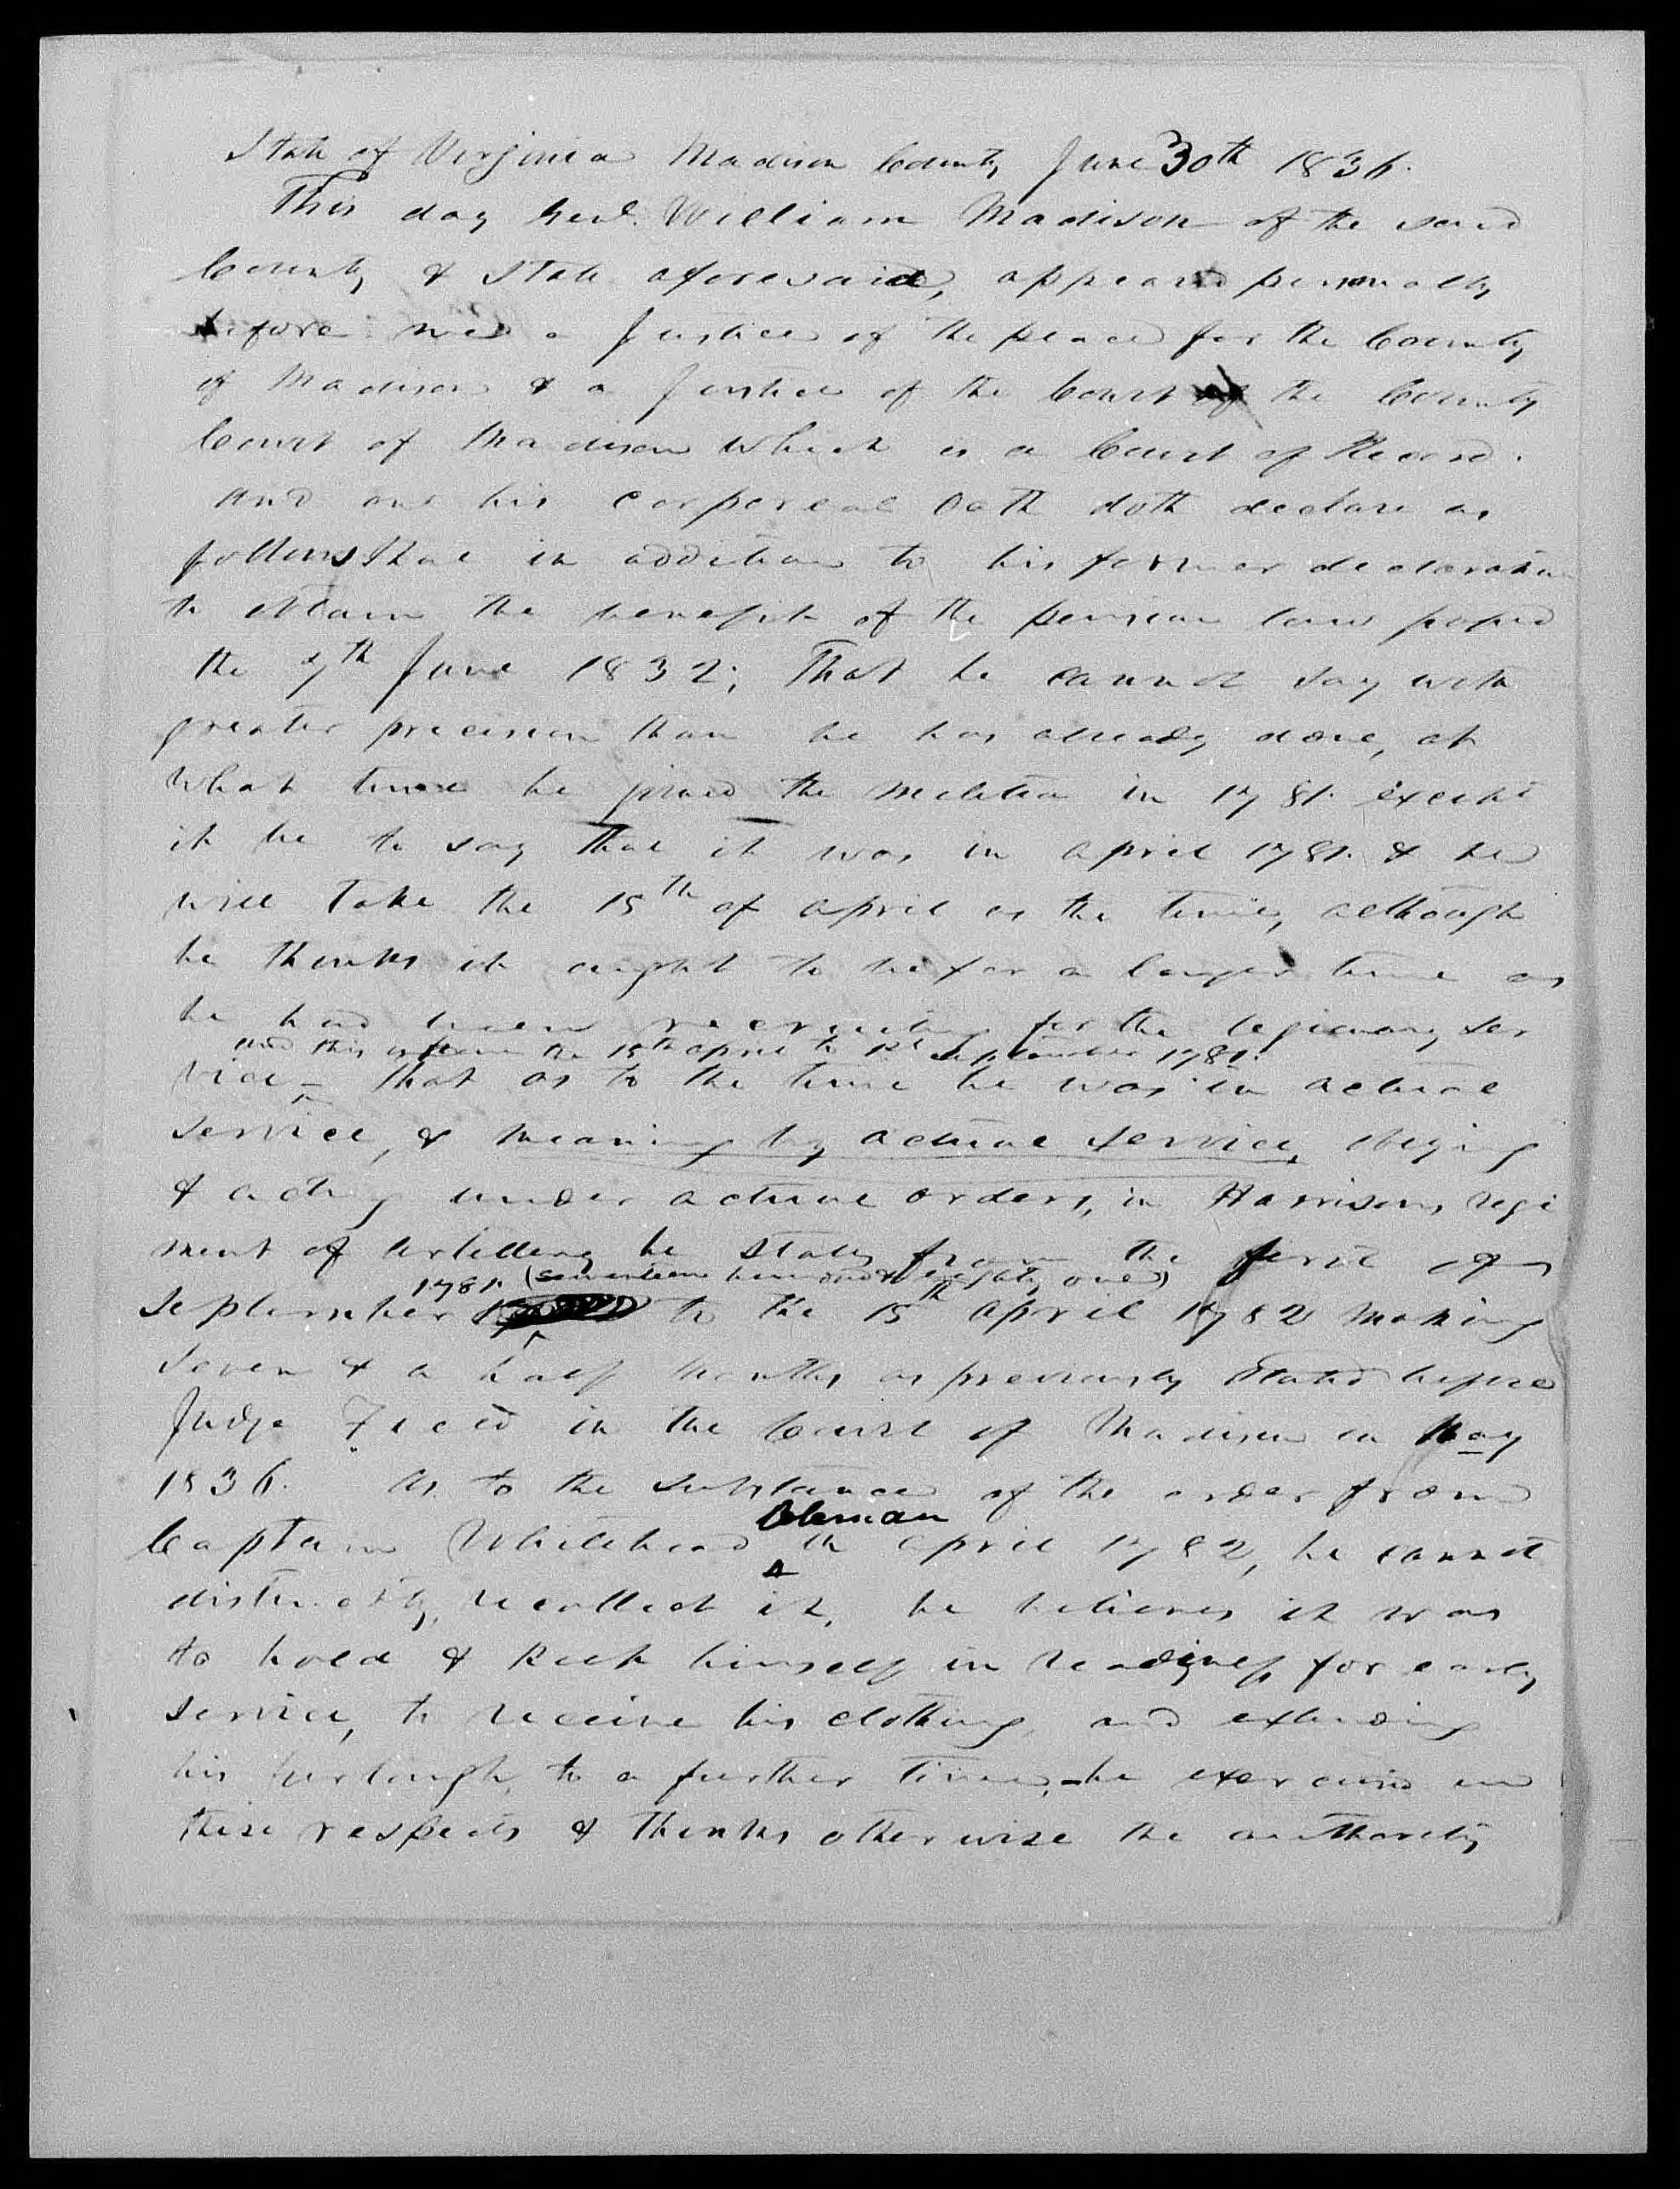 State of Virginia Madison County June 30th 1836.
This day Genl. William Madison of the said
County & State aforesaid, appeared personally
before me a Justice of the peace for the County
of Madison & a Justice of the Court of the County
Court of Madison which is a Court of Record.
and on his corporeal Oath doth declare as
follows that in addition to his former declaration
to obtain the benefit of the pension law passed
the 7th June 1832; That he cannot say with
greater precision than he has already done, at
what time he joined the militia in 1781. except
it be to say that it was in april 1781. & he
will take the 15th of april as the time, although
he thinks it ought to be for a longer time as
he had been recruiting for the legionary ser
and this is from the 15th april to 1st September 1781.
vice - that as to the time he was in actual
service, & meaning by actual service, obeying
& acting under actual orders, in Harrisons regi
ment of artillery he states from the first of
1781. (seventeen hundred & eighty one)
September to the 15th april 1782 making
seven & a half months as previously stated before
Judge Field in the Court of Madison in May
1836. As to the substance of the order from
Coleman
Captain Whitehead in april 1782, he cannot
distinctly recollect it, he believes it was
to hold & keep himself in readiness for early
service, to receive his clothing, and extending
his furlough, to a further time, he exercised in
these respects & thinks otherwise the authority